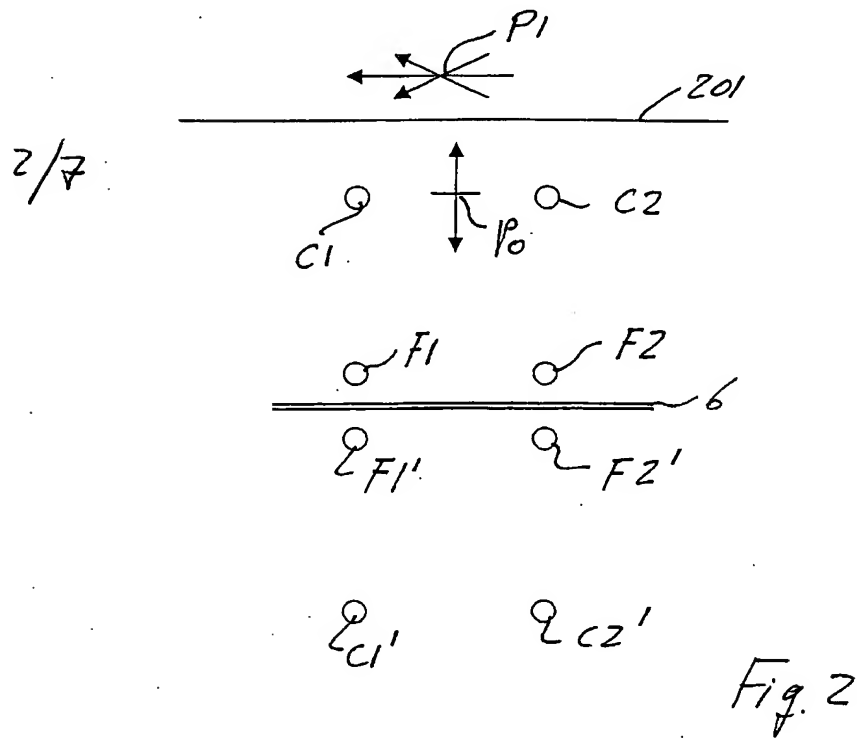 P1
201
2/7
C1
P0
C2
F1
F2
6
F1'
F2'
C1'
C2'
Fig. 2